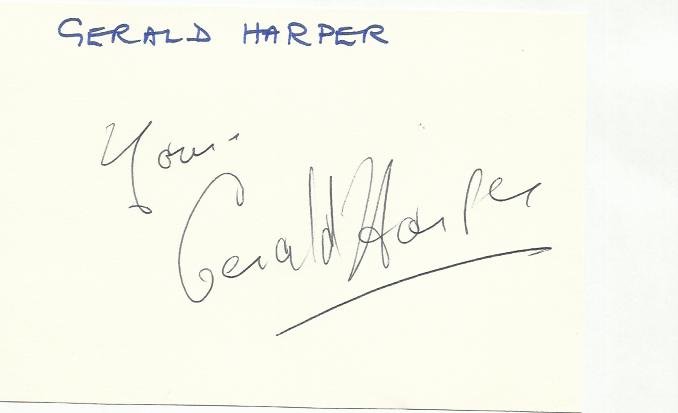 GERALD HARPER
Yours
Gerald Harper